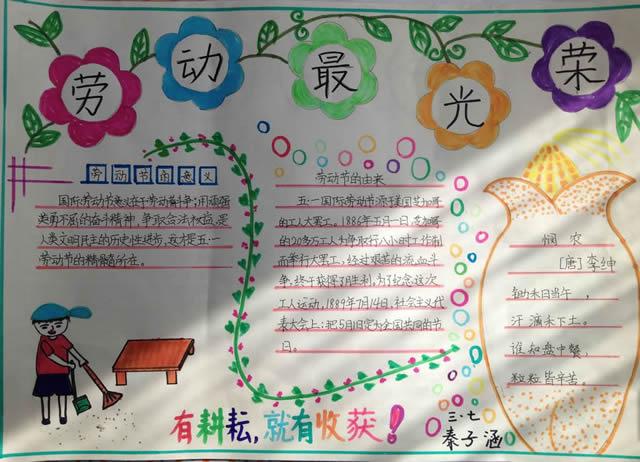 劳动最光荣
劳动节的意义
国际劳动节意义在于劳动者斗争,用顽强
英勇不屈的奋斗精神,争取合法权益,是
人类文明民主的历史性进步,这才是五一
劳动节的精髓所在。
劳动节的由来
五一国际劳动节源于美国芝加哥
的工人大罢工。1886年五月一日,芝加哥
的20多万工人为争取行八小时工作制
而举行大罢工,经过艰苦的流血斗
争,终于获得了胜利,为了纪念这次
工人运动,1889年7月14日,社会主义代
表大会上:把5月1日定为全国共同的节
日。
悯农
[唐]李绅
锄禾日当午,
汗滴禾下土。
谁知盘中餐,
粒粒皆辛苦。
有耕耘,就有收获!
三.七
秦子涵